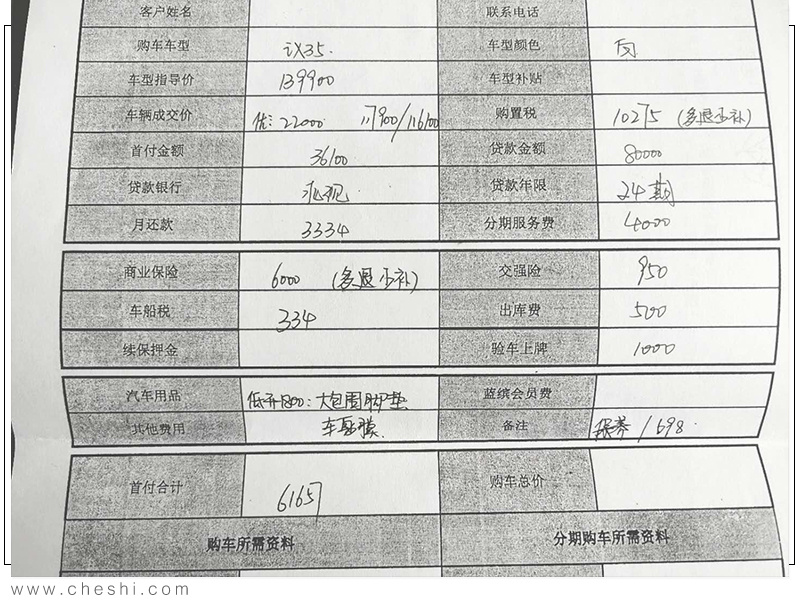 客户姓名 联系电话
购车车型 ix35. 车型颜色 白
车型指导价 139900 车型补贴
车辆成交价 优:22000 117900/116100 购置税 10275 (多退少补)
首付金额 36100 贷款金额 80000
贷款银行 北现 贷款年限 24期
月还款 3334 分期服务费 4000
商业保险 6000 (多退少补) 交强险 950
车船税 334 出库费 500
续保押金 验车上牌 1000
汽车用品 低开1800:大包围脚垫 蓝缤会员费
其他费用 车膜 备注 保养/698
首付合计 61657 购车总价
购车所需资料 分期购车所需资料
www.cheshi.com